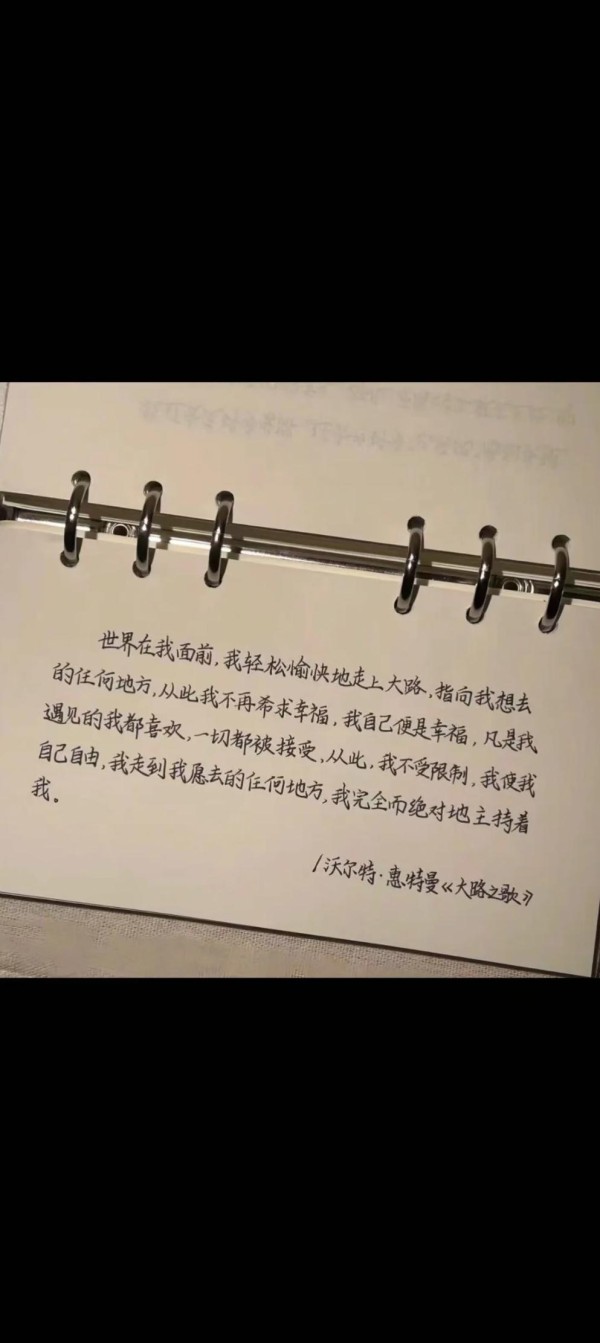 世界在我面前,我轻松愉快地走上大路,指向我想去
的任何地方,从此我不再希求幸福,我自己便是幸福,凡是我
遇见的我都喜欢,一切都被接受,从此,我不受限制,我使我
自己自由,我走到我愿去的任何地方,我完全而绝对地主持着
我。
/沃尔特·惠特曼《大路之歌》